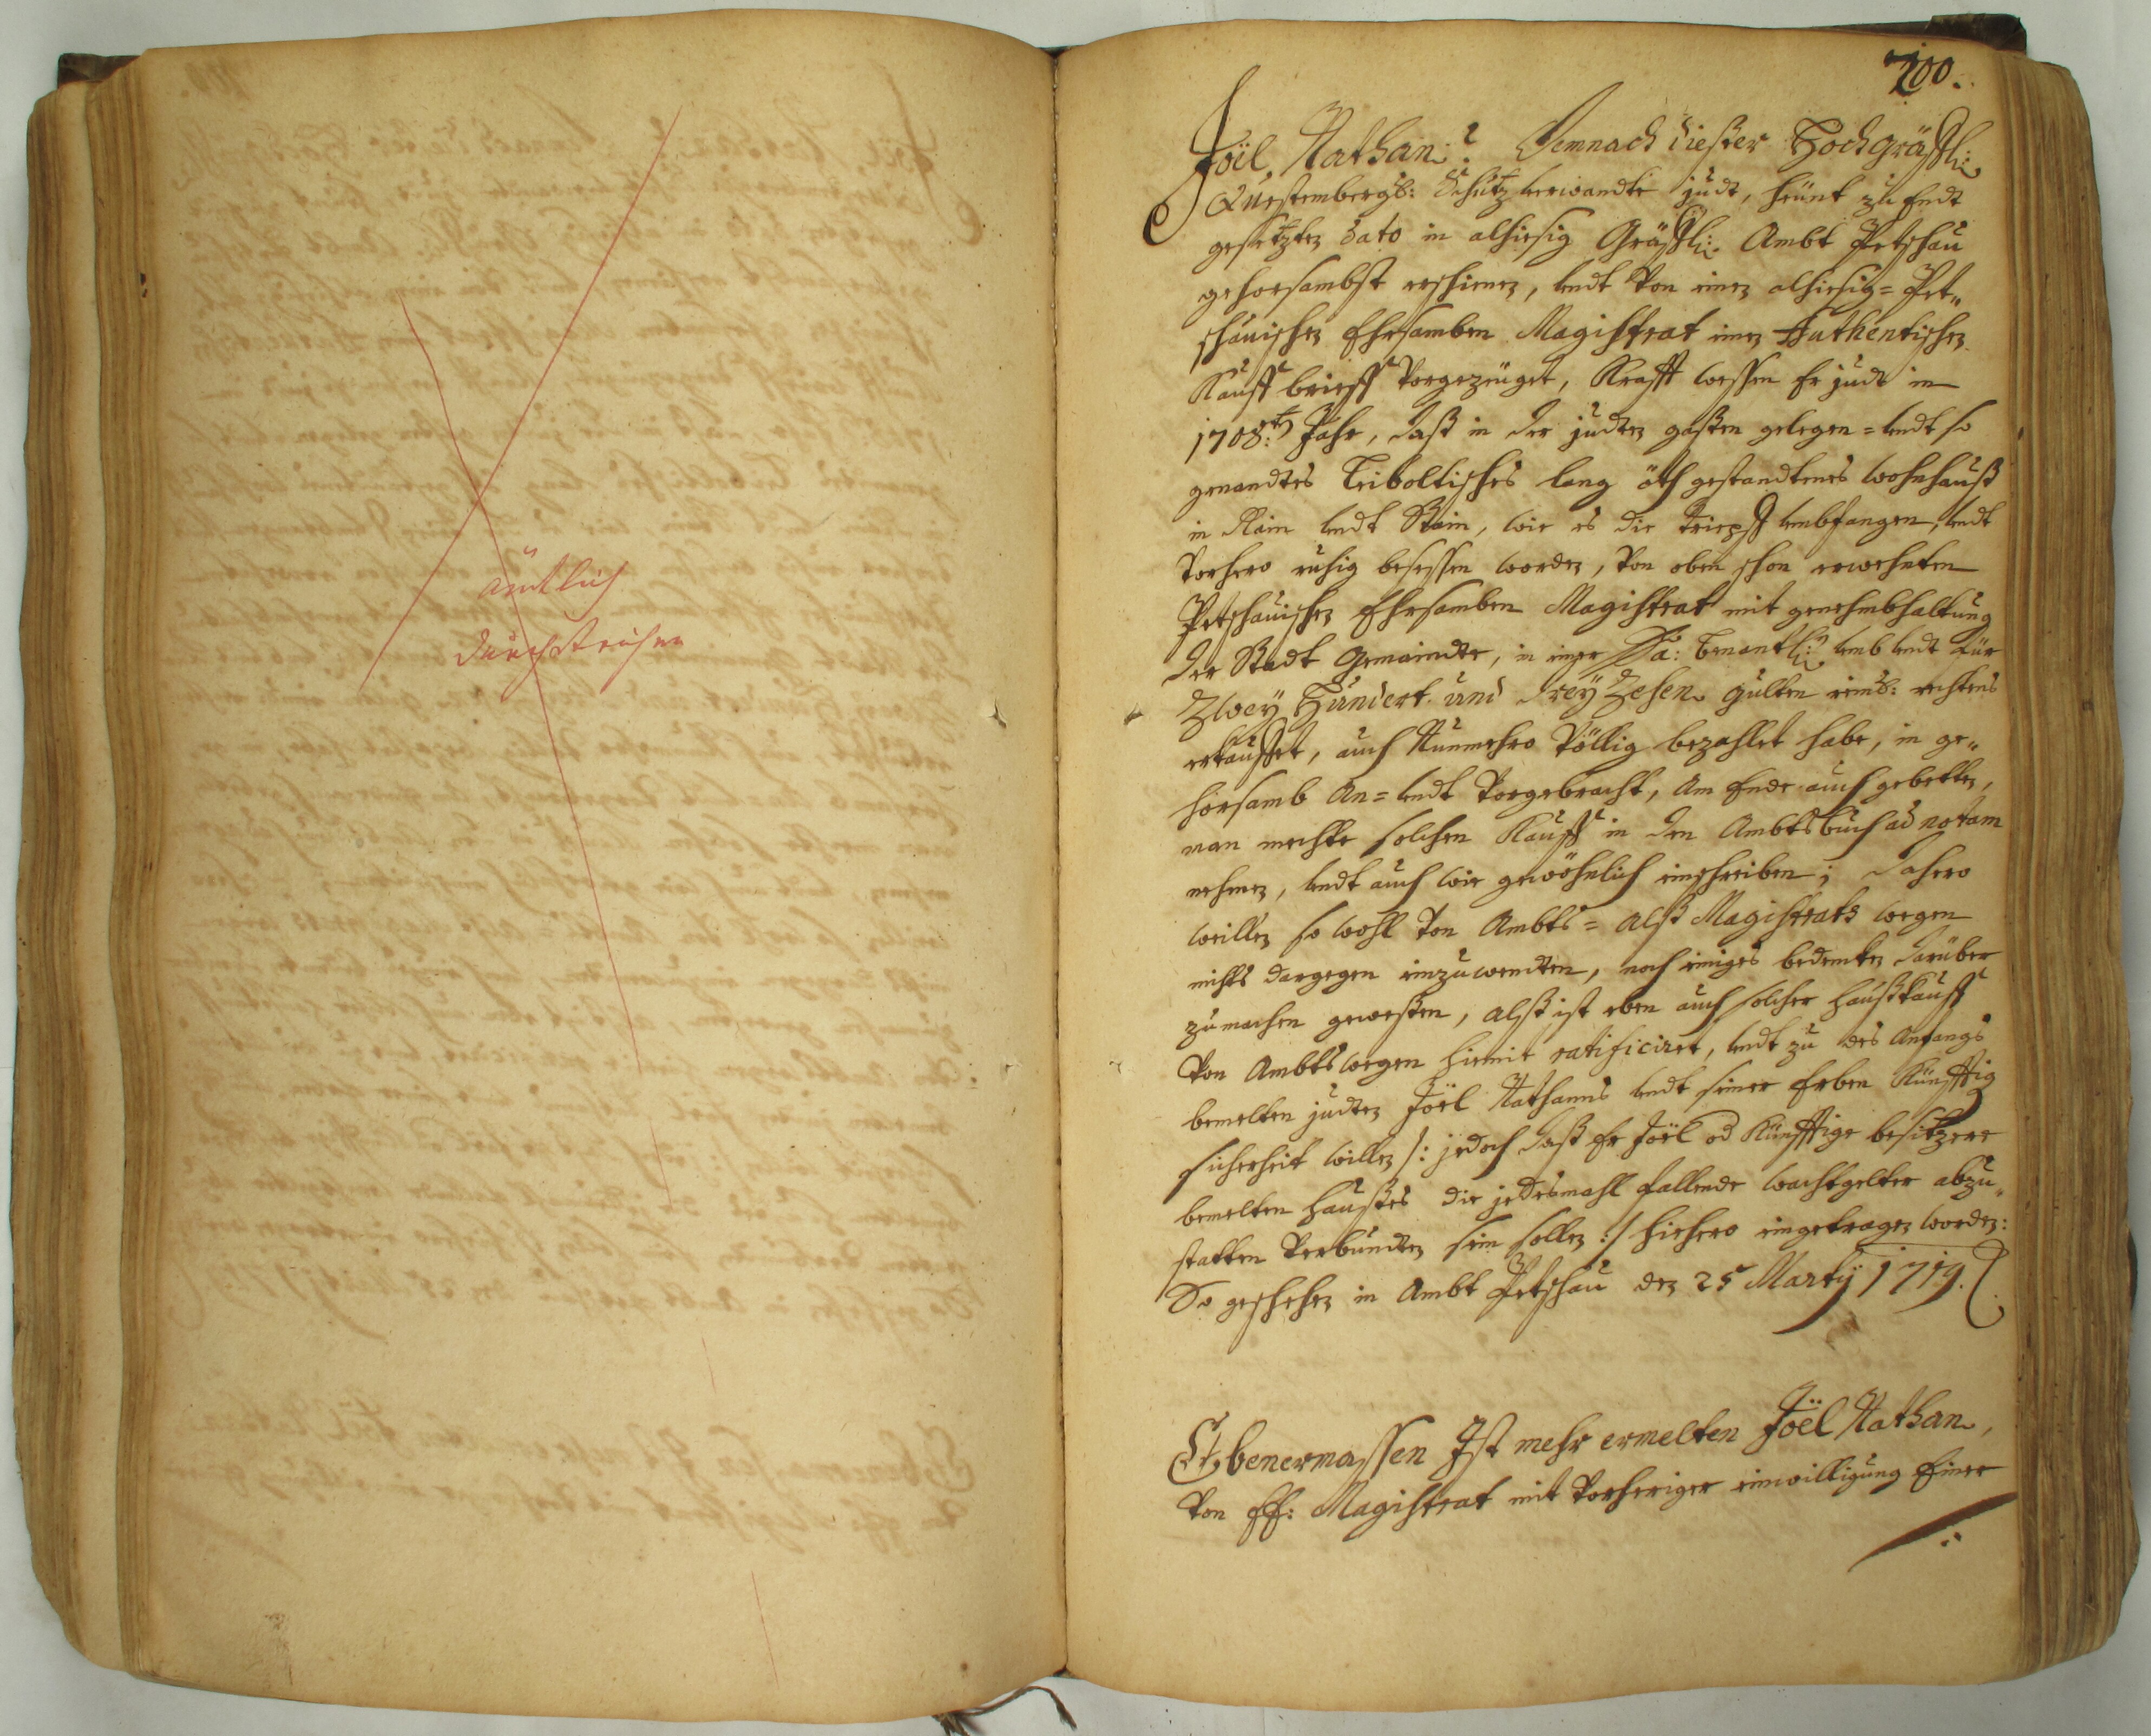 ämtlich
durchstrichen
200.
Joël Nathan: Demnach dießer Hochgräffl:
Questembergl: Schutz verwandte judt, heunt zu Endt
gesetzten dato in alhiesig Gräffl: Ambt Petschau
gehorsambst erschienen, undt Von einen alhiesig= Pet„
schauischen Ehrsamben Magistrat einen Authentischen
Kauff brieff Vorgezeuget, Krafft wessen Er judt im
1708.t Jahr, daß in der judten gaßen gelegen= undt so
genandtes Teiboltisches lang öth gestandtenes wohnhauß
in Rain undt Stain, wie es die umbfangen, undt
Vorhero ruhig besessen worden, Von oben schon erwehnten
Petschauischen Ehrsamben Magistrat mit genehmbhaltung
der Stadt Gemaindte, in einer Sa: benantl: umb undt Für
Zwey Hundert und dreyZehen gulten reinl: rechtens
erkauffet, auch Nunmehro Völlig bezahlet habe, in ge„
horsamb An= undt Vorgebracht, Am Ende auch gebetten,
man mechte solchen Kauff in den Ambtsbuch ad notam
nehmen, undt auch wie gewöhnlich einschreiben; dahero
weillen so wohl Von Ambts= alß Magistrats wegen
nichts dargegen einzuwendten, noch einiges bedenken darüber
zu machen geweßen, alß ist eben auch solcher haußkauff
Von Ambtswegen hiemit ratificiret, undt zu des Anfangs
bemelten judten Joël Nathanns undt seiner Erben Künfftig
sicherheit willen /: jedoch daß Er Joël od Künfftige besitzere
bemelten haußes die jedesmahl fallende wachtgelter abzu„
statten Verbundten sein sollen :/ hiehero eingetragen worden:
So geschehen in Ambt Petschau den 25 Marty 1719.
Ebenermassen Ist mehr ermelten Joël Nathan,
Von EE: Magistrat mit Vorheriger einwilligung Einer